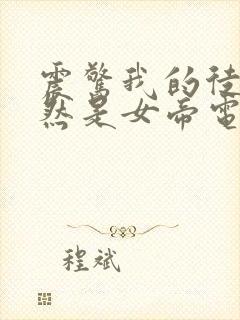 震惊我的徒
然是女帝电
程斌